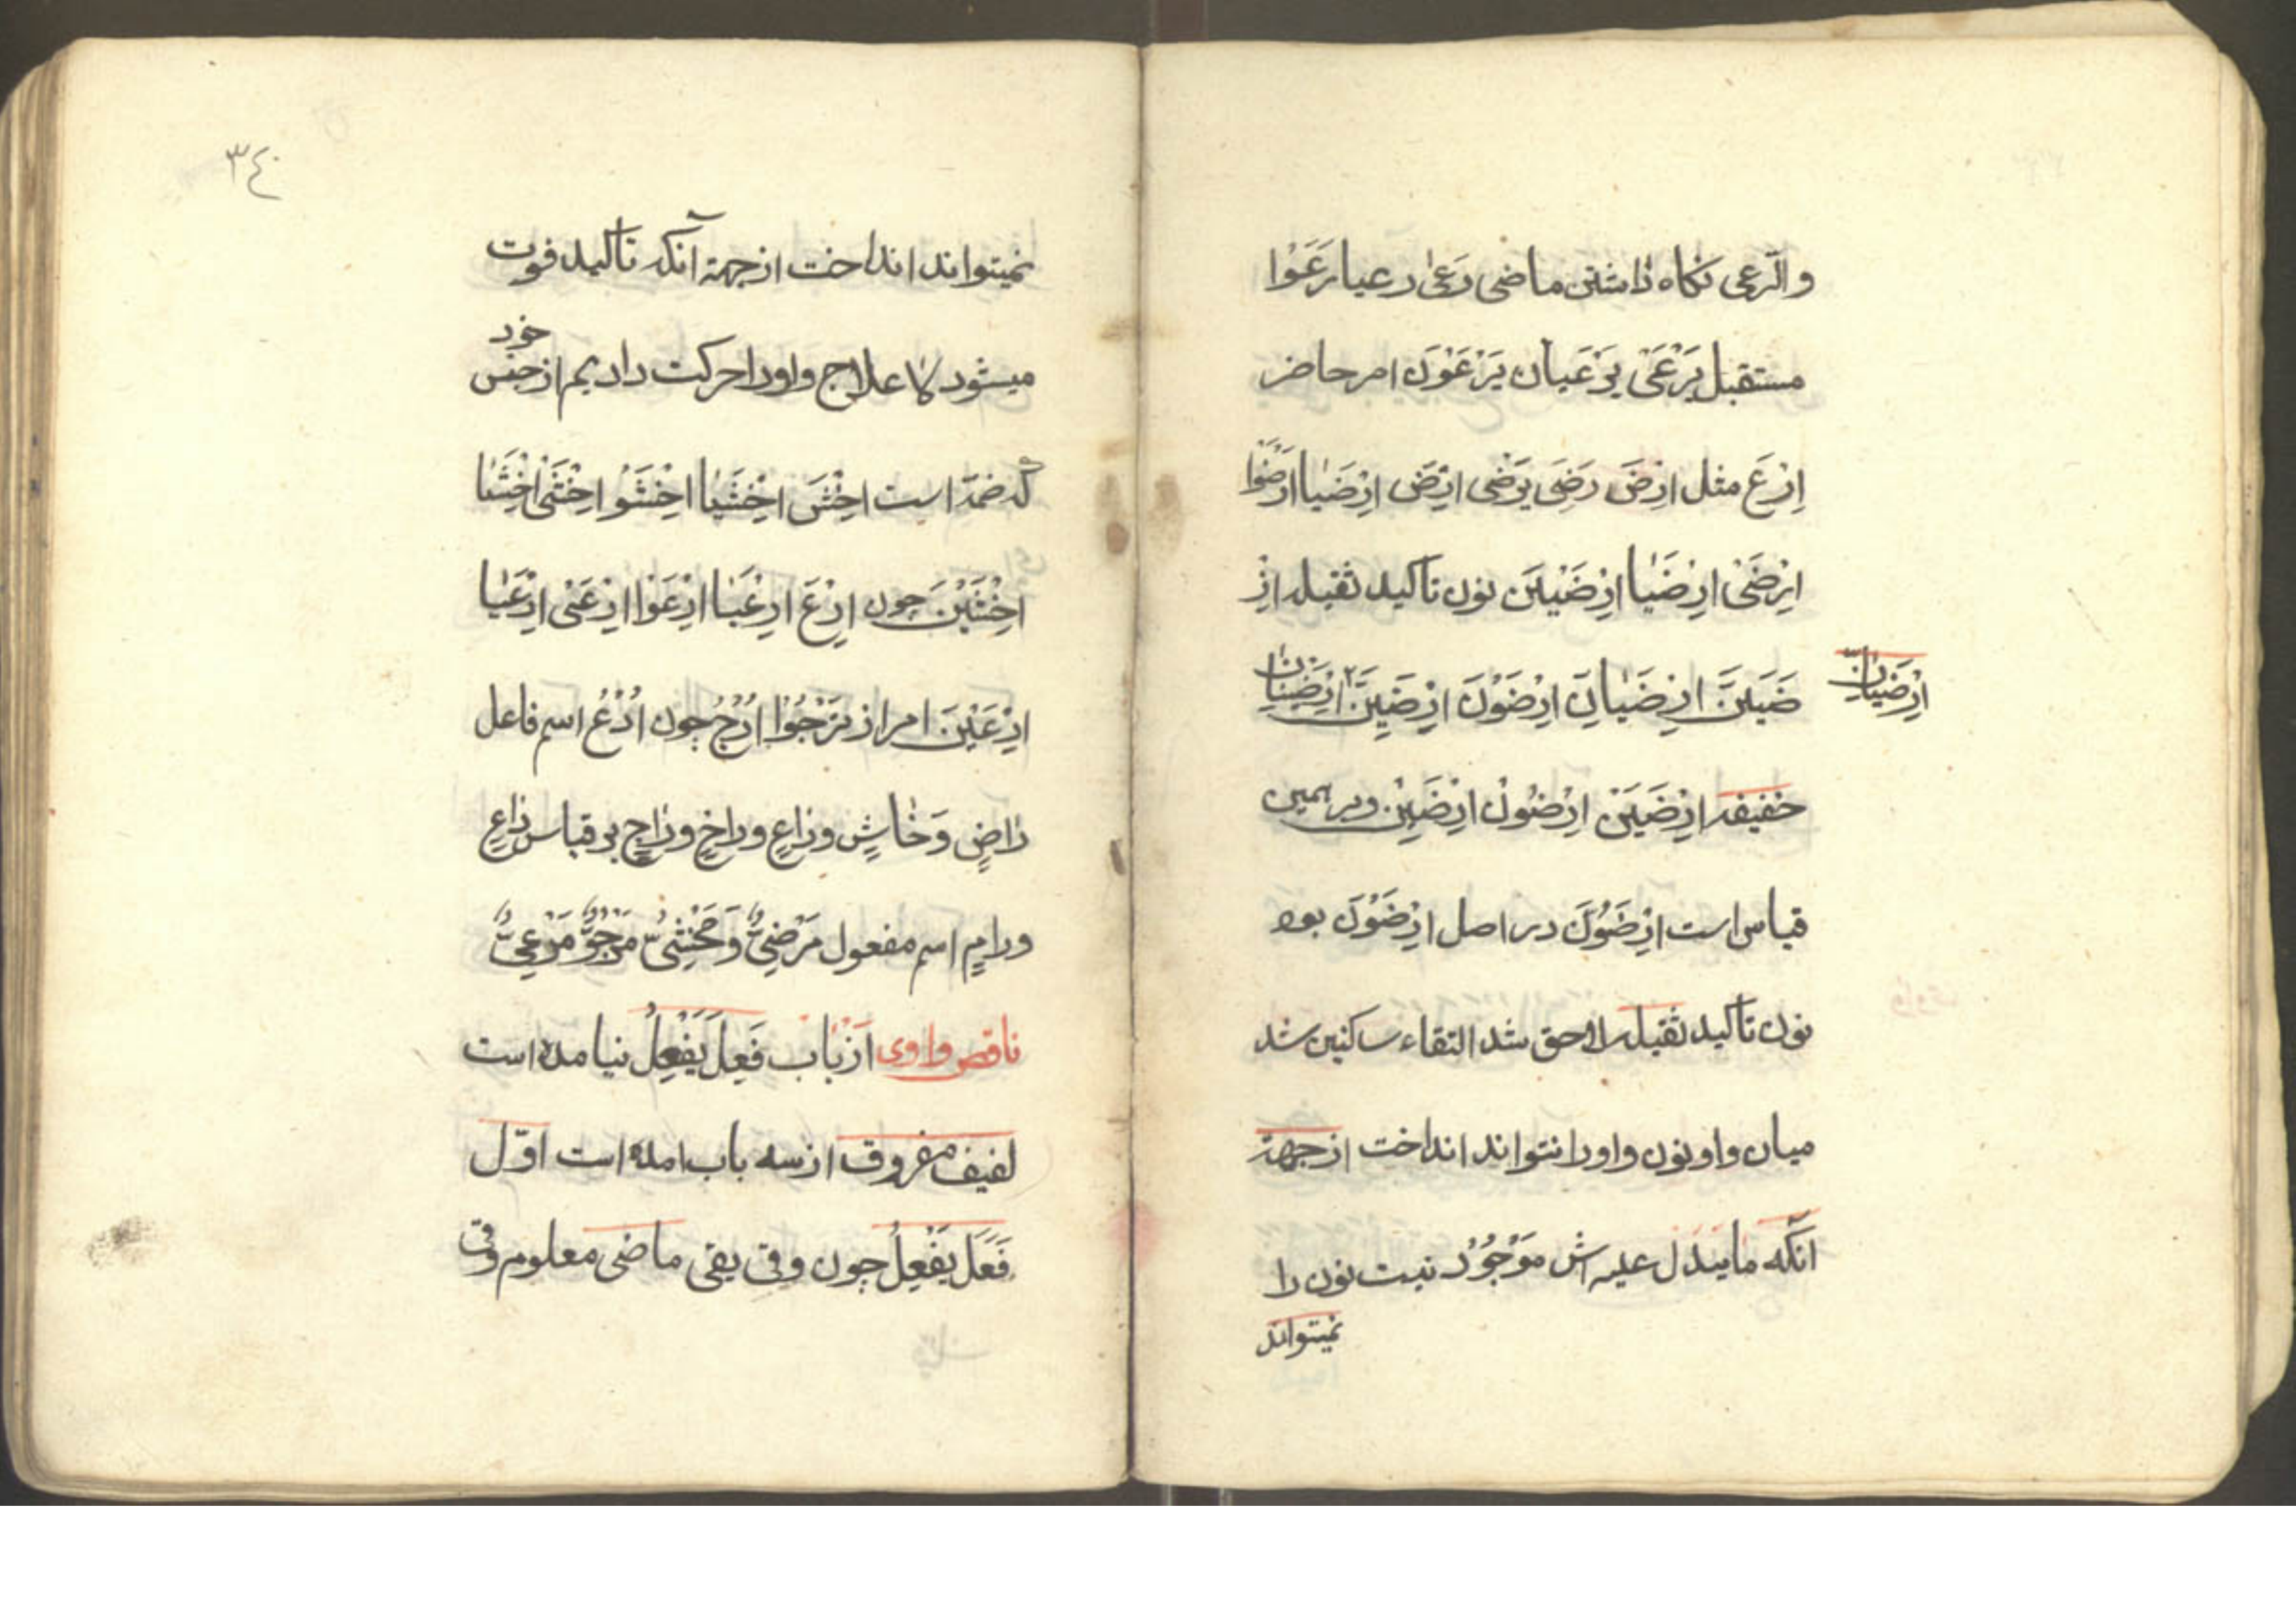 والرّعی نکاه داشتن ماضی رَعیٰ رعیا رَعَوْا
مستقبل یَرْعَیٰ یَرْعَیانِ یَرْعَوْنَ امر حاضر
اِرْعَ مثل ارْضَ رَضِیَ یَرْضی ارْضَ ارْضَیٰا ارْضَوْا
ارْضَیْ ارْضَیٰا ارْضَیْنَ نون تاکید ثقیله ارْ
ضَیَنَّ ارْضَیٰانِّ ارْضَوُنَّ ارْضَیِنَّ ارْضَیٰانِّ
ارْضَیْنٰانِّ
خفیفه ارْضَیَنْ ارْضَوُنْ ارْضَیِنْ وبر همین
قیاس است ارْضَوُنَّ در اصل ارْضَوْنَ بود
نون تاکید ثقیله لاحق شد التقاء ساکنین شد
میان واو نون واو را نتواند انداخت از جهة
آنکه ما یدل علیه اش مَوْجُوْد نیست نون را
نمیتواند
٣٤
نمیتواند انداخت از جهة آنکه تاکید فوت
میشود علاج واو را حرکت دادیم از جنس خود
که ضمّه است اخْشَ اخْشَیٰا اخْشَوْا اخْشَیْ اخْشَیٰا
اخْشَیْنَ چون ارْعَ ارْعَیٰا ارْعَوْا ارْعَیْ ارْعَیٰا
ارْعَیْنَ امر از یَرْجُوْا ارْجُ چون ادْعُ اسم فاعل
رٰاضٍ وَخٰاشٍ ورٰاعٍ وراخٍ ورٰاجٍ بر قیاس دٰاعٍ
ورامٍ اسم مفعول مَرْضِیٌّ وَمَخْشِیٌّ مَرْجُوٌّ مَرْعِیٌّ
ناقص واوی از باب فَعِلَ یَفْعِلُ نیامده است
لفیف مفروق از سه باب امده است اوّل
فَعَلَ یَفْعِلُ چون وقی یقی ماضی معلوم وقی